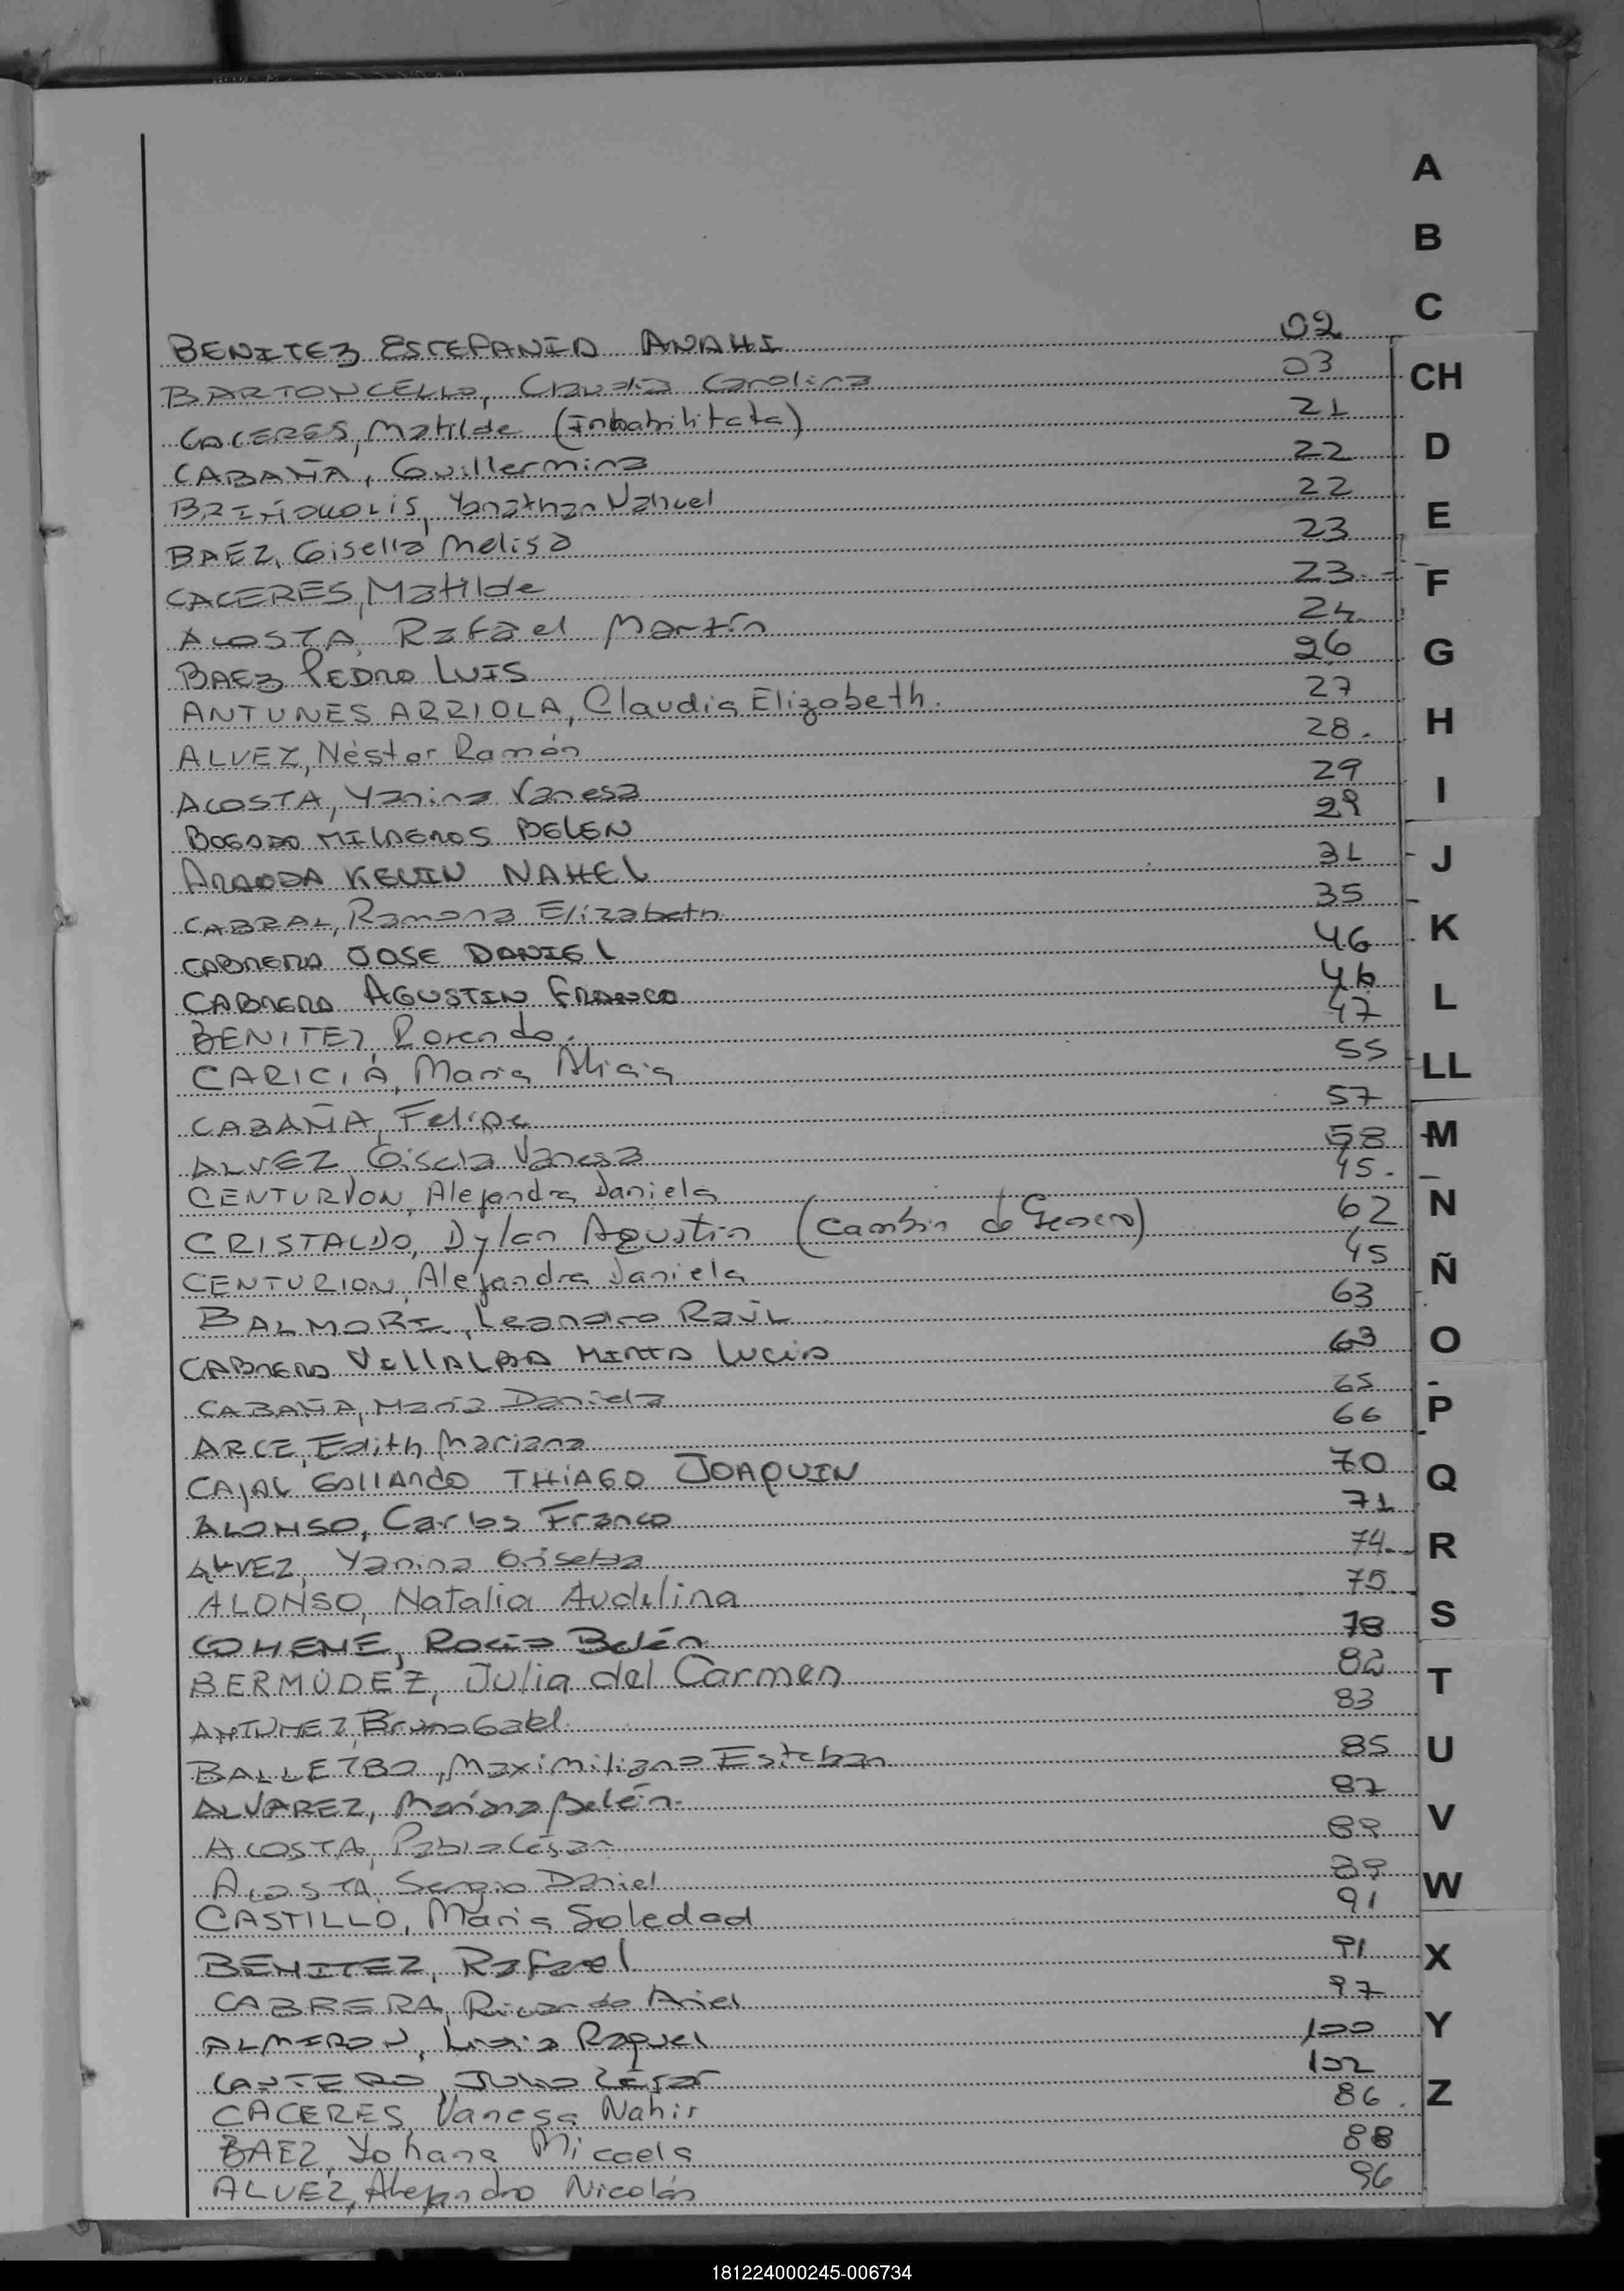 BENITEZ ESTEFANIA ANAHI 02
BARTONCELLO, Claudia Carolina 03
CACERES, Matilde (Inhabilitata) 21
CABAÑA, Guillermina 22
Yonathan Nahuel 22
BAEZ, Gisella Melisa 23
CACERES, Matilde 23
ACOSTA, Rafael Martín 24
BAEZ PEDRO LUIS 26
ANTUNES ARRIOLA, Claudia Elizabeth. 27
ALVEZ, Néstor Ramón 28.
ACOSTA, Yanina Vanesa 29
BOGADO MILAGROS BELEN 29
KEVIN NAHEL 31
CABRAL, Ramona Elizabeth 35
CABRERA JOSE DANIEL 46
CABRERA AGUSTIN FRANCO 46
BENITEZ, Rosendo. 47
CARICIA, Maria Alicia 55
CABAÑA, Felipe 57
ALVEZ Gisela Vanesa 58
CENTURION, Alejandra Daniela 45.
CRISTALDO, Dylan Agustin (Cambio de Genero) 62
CENTURION, Alejandra Daniela 45
BALMORI, Leandro Raúl 63
CABRERA VILLALBA MIRTA LUCIA 63
CABAÑA, María Daniela 65
ARCE, Edith Mariana 66
CAJAL GALLARDO THIAGO JOAQUIN 70
ALONSO, Carlos Franco 71
ALVEZ, Yanina Griselda 74.
ALONSO, Natalia Audelina 75
COHENE, Rocío Belén 78
BERMÚDEZ, Julia del Carmen 82
ANTUNEZ, Bruno Gabl. 83
BALLETBO, Maximiliano Esteban 85
ALVAREZ, Mariana Belén. 87
ACOSTA, Pablo César 89
ACOSTA, Sergio Daniel 89
CASTILLO, Maria Soledad 91
BENITEZ, Rafael 91
CABRERA, Ricardo Ariel 97
ALMIRON, Ligia Raquel 100
CANTERO, Julio César 102
CACERES, Vanesa Nahir 86.
BAEZ, Yohana Micaela 88
ALVEZ, Alejandro Nicolás 96
A
B
C
CH
D
E
F
G
H
I
J
K
L
LL
M
N
Ñ
O
P
Q
R
S
T
U
V
W
X
Y
Z
181224000245-006734